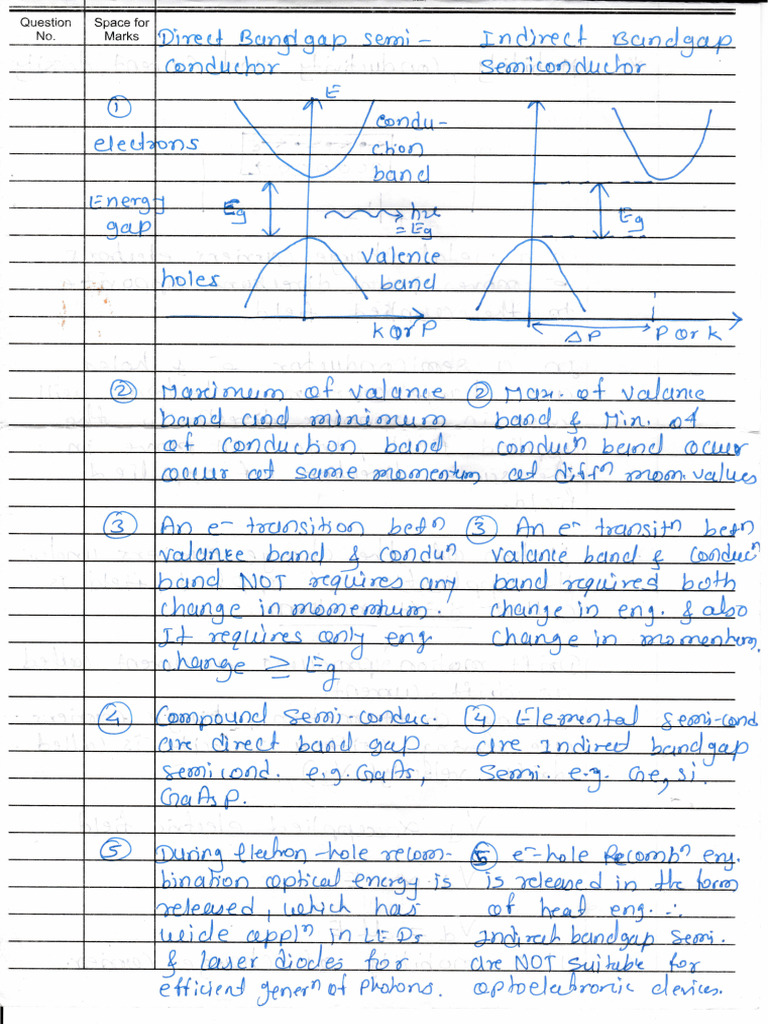 Question No.
Space for Marks
Direct Bandgap semi-conductor
Indirect Bandgap Semiconductor
①
E
electrons
condu-
ction
band
Energy
gap
Eg
hν
= Eg
Eg
Valence
band
holes
k or P
ΔP
P or k
② Maximum of valance
band and minimum
of conduction band
occur at same momentum
② Max. of valance
band & Min. of
conducⁿ band occur
at diffⁿ mom. values
③ An e⁻ transition betⁿ
valance band & conduⁿ
band NOT requires any
change in momentum.
It requires only eng.
change ≥ Eg
③ An e⁻ transitⁿ betⁿ
valance band & conducⁿ
band required both
change in eng. & also
change in momentum.
④ Compound semi-conduc.
are direct band gap
semicond. e.g. GaAs,
GaAsP.
④ Elemental semi-cond
are Indirect bandgap
Semi. e.g. Ge, si.
⑤ During electron-hole recom-
bination optical energy is
released, which has
wide applⁿ in LEDs
& laser diodes for
efficient generⁿ of photons.
⑤ e⁻-hole Recombⁿ eng.
is released in the form
of heat eng. ∴
Indirect bandgap semi.
are NOT suitable for
optoelectronic devices.